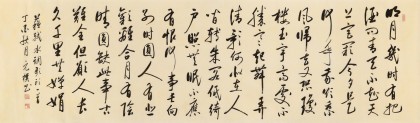 明月幾時有把
酒問青天不知天
上宮闕今夕是
何年我欲乘
風歸去又恐瓊
樓玉宇高處不
勝寒起舞弄
清影何似在人
間轉朱閣低綺
戶照無眠不應
有恨何事長向
別時圓人有悲
歡離合月有陰
晴圓缺此事古
難全但願人長
久千里共嬋娟
蘇軾水調歌頭